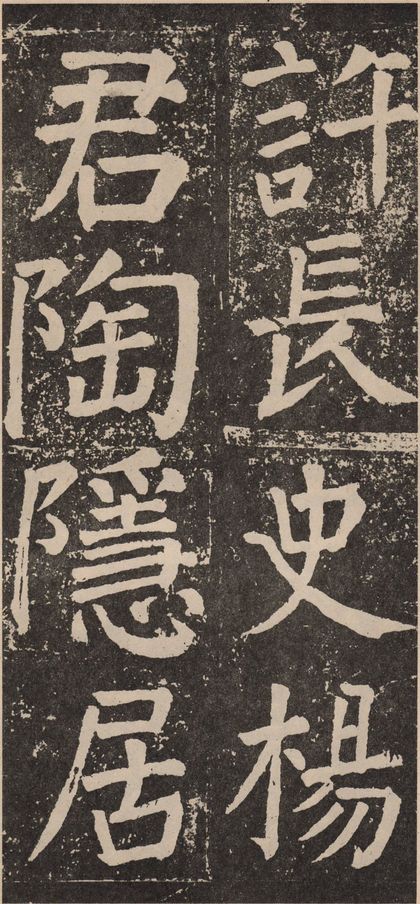 許長史楊
君陶隱居